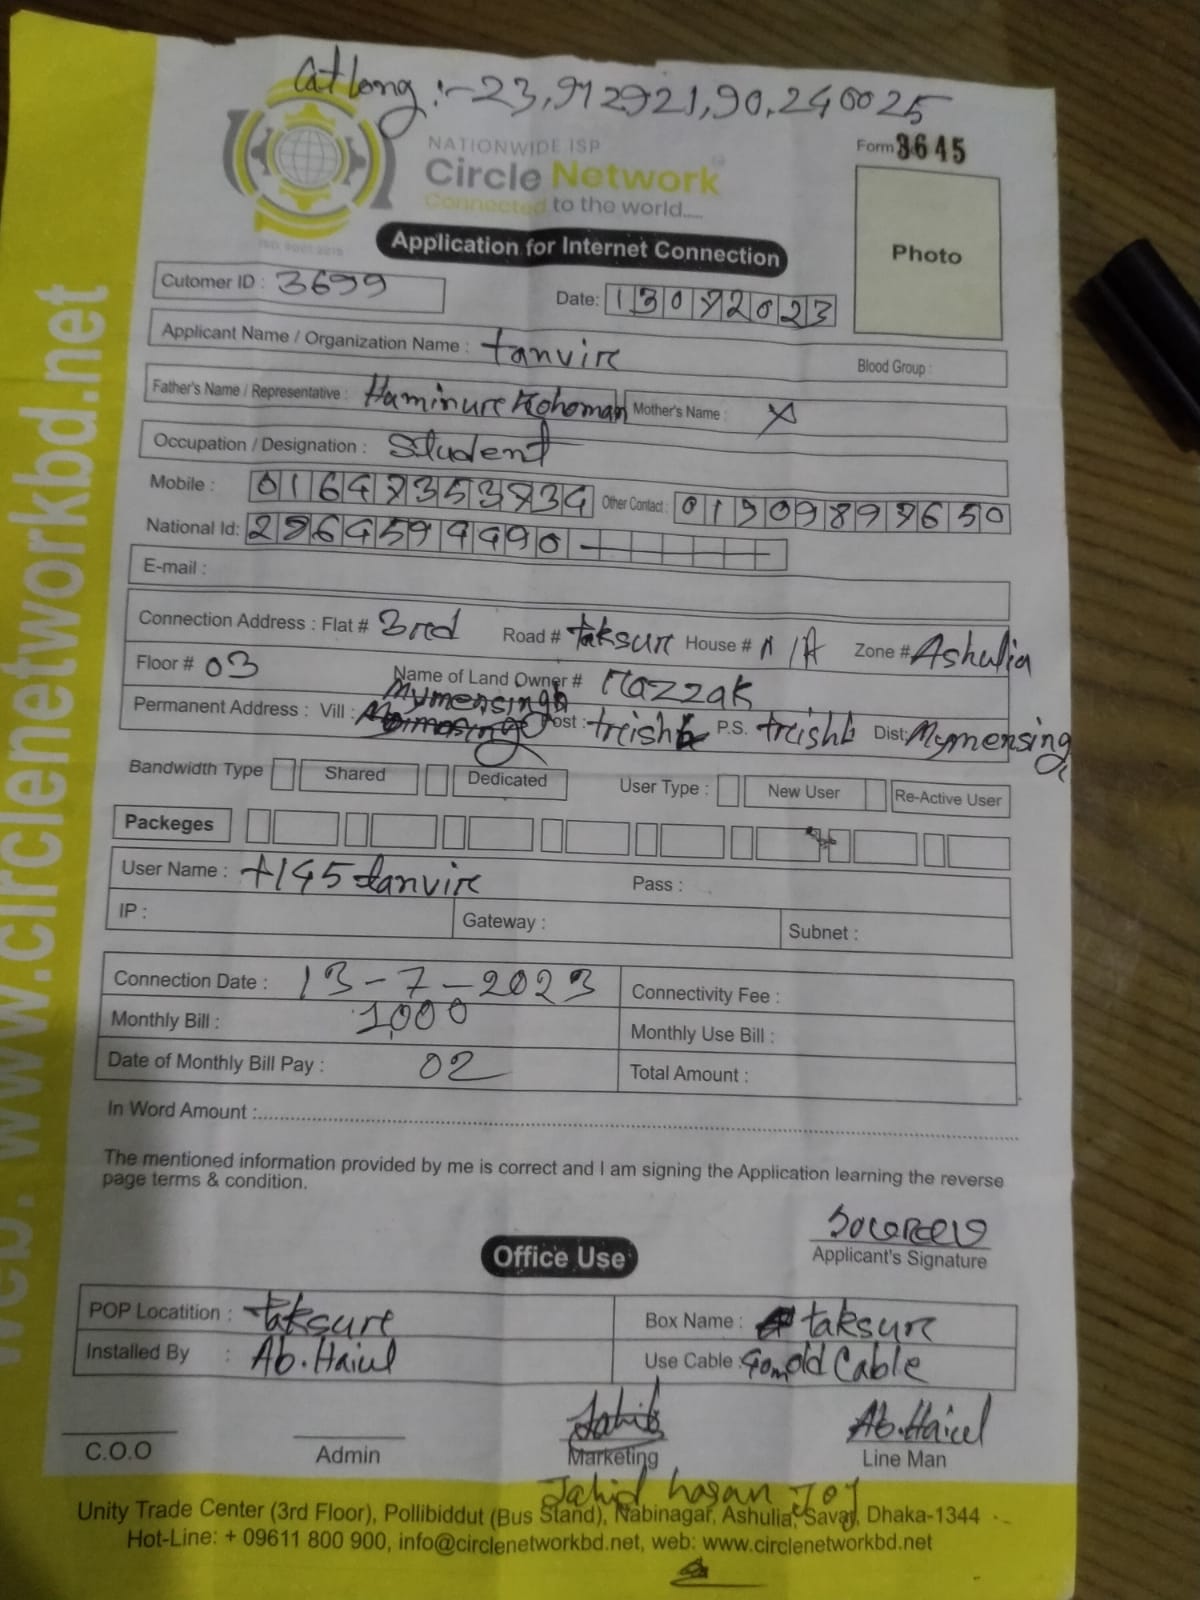 Cat long :- 23.912921, 90.240025
NATIONWIDE ISP
Circle Network
Connected to the world.....
ISO 9001:2015
Form 3645
Photo
Application for Internet Connection
Cutomer ID : 3699
Date: 13072023
Applicant Name / Organization Name : tanvir
Blood Group :
Father's Name / Representative : Haminure Rohoman Mother's Name : X
Occupation / Designation : Student
Mobile : Other Contact :
National Id:
E-mail :
Connection Address : Flat # 3rd Road # taksur House # N/A Zone # Ashulia
Floor # 03 Name of Land Owner # Razzak
Permanent Address : Vill : Mymensingh Post : trishb P.S. trishb Dist: Mymensing
Bandwidth Type Shared Dedicated User Type : New User Re-Active User
Packeges
User Name : t145tanvir Pass :
IP : Gateway : Subnet :
Connection Date : 13-7-2023 Connectivity Fee :
Monthly Bill : 1000 Monthly Use Bill :
Date of Monthly Bill Pay : 02 Total Amount :
In Word Amount :
The mentioned information provided by me is correct and I am signing the Application learning the reverse
page terms & condition.
Applicant's Signature
Office Use
POP Locatition : taksure Box Name : taksure
Installed By : Ab.Haiul Use Cable : old Cable
C.O.O Admin Marketing Ab.Haiul Line Man
Jahid hasan joy
Unity Trade Center (3rd Floor), Pollibiddut (Bus Stand), Nabinagar, Ashulia, Savar, Dhaka-1344
Hot-Line: + 09611 800 900, info@circlenetworkbd.net, web: www.circlenetworkbd.net
web: www.circlenetworkbd.net